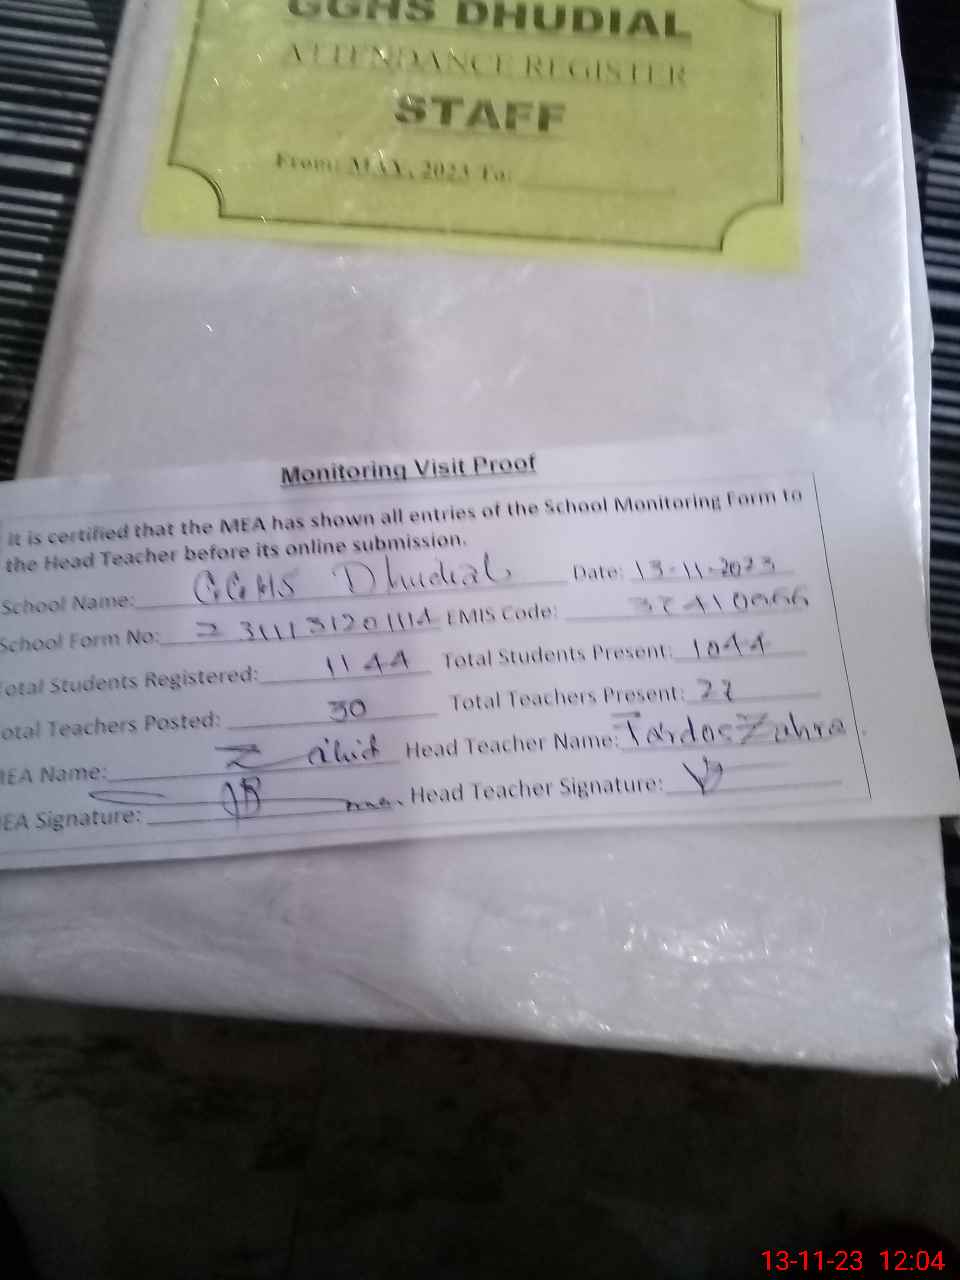 GGHS DHUDIAL
ATTENDANCE REGISTER
STAFF
From: MAY, 2023 To:
Monitoring Visit Proof
It is certified that the MEA has shown all entries of the School Monitoring Form to
the Head Teacher before its online submission.
School Name: GGHS Dhudial Date: 13-11-2023
School Form No: EMIS Code:
Total Students Registered: 1144 Total Students Present: 1044
Total Teachers Posted: 30 Total Teachers Present:
MEA Name: Zahid Head Teacher Name: Zahra
MEA Signature: Head Teacher Signature:
13-11-23 12:04